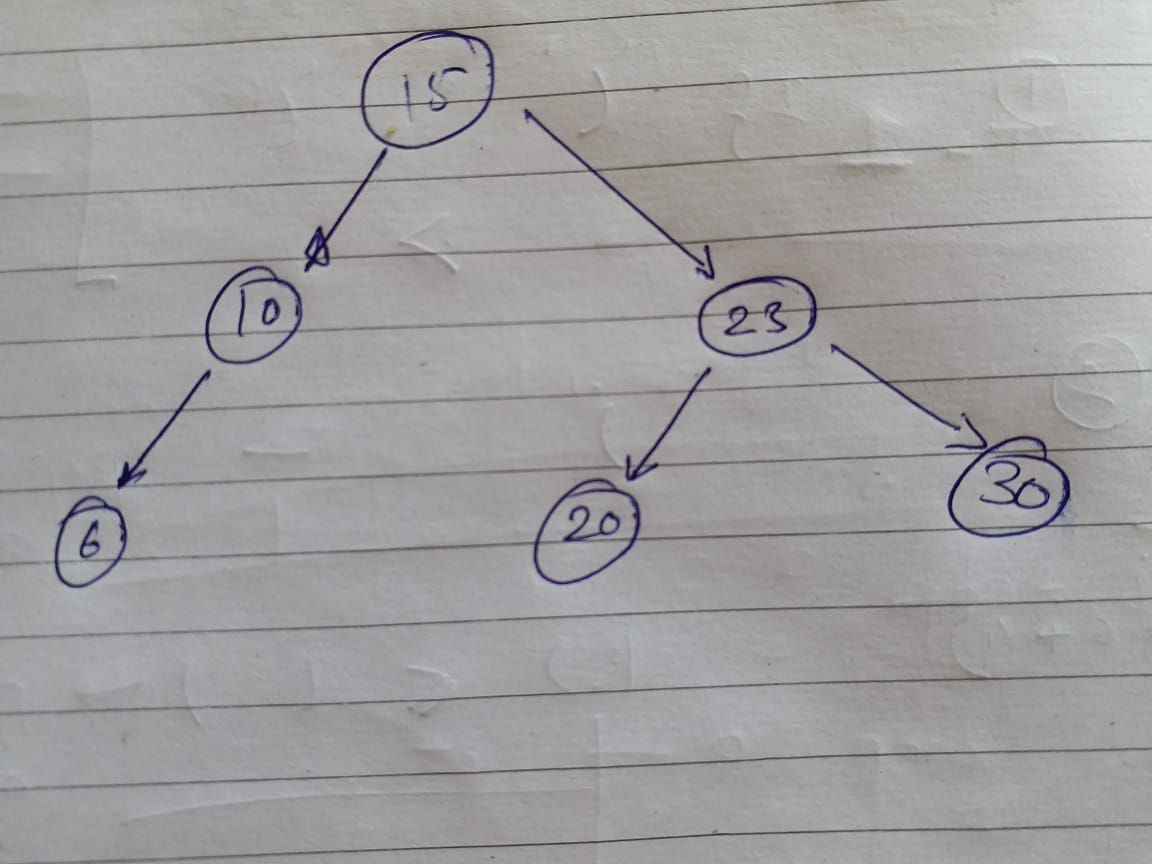 15
10 23
6 20 30